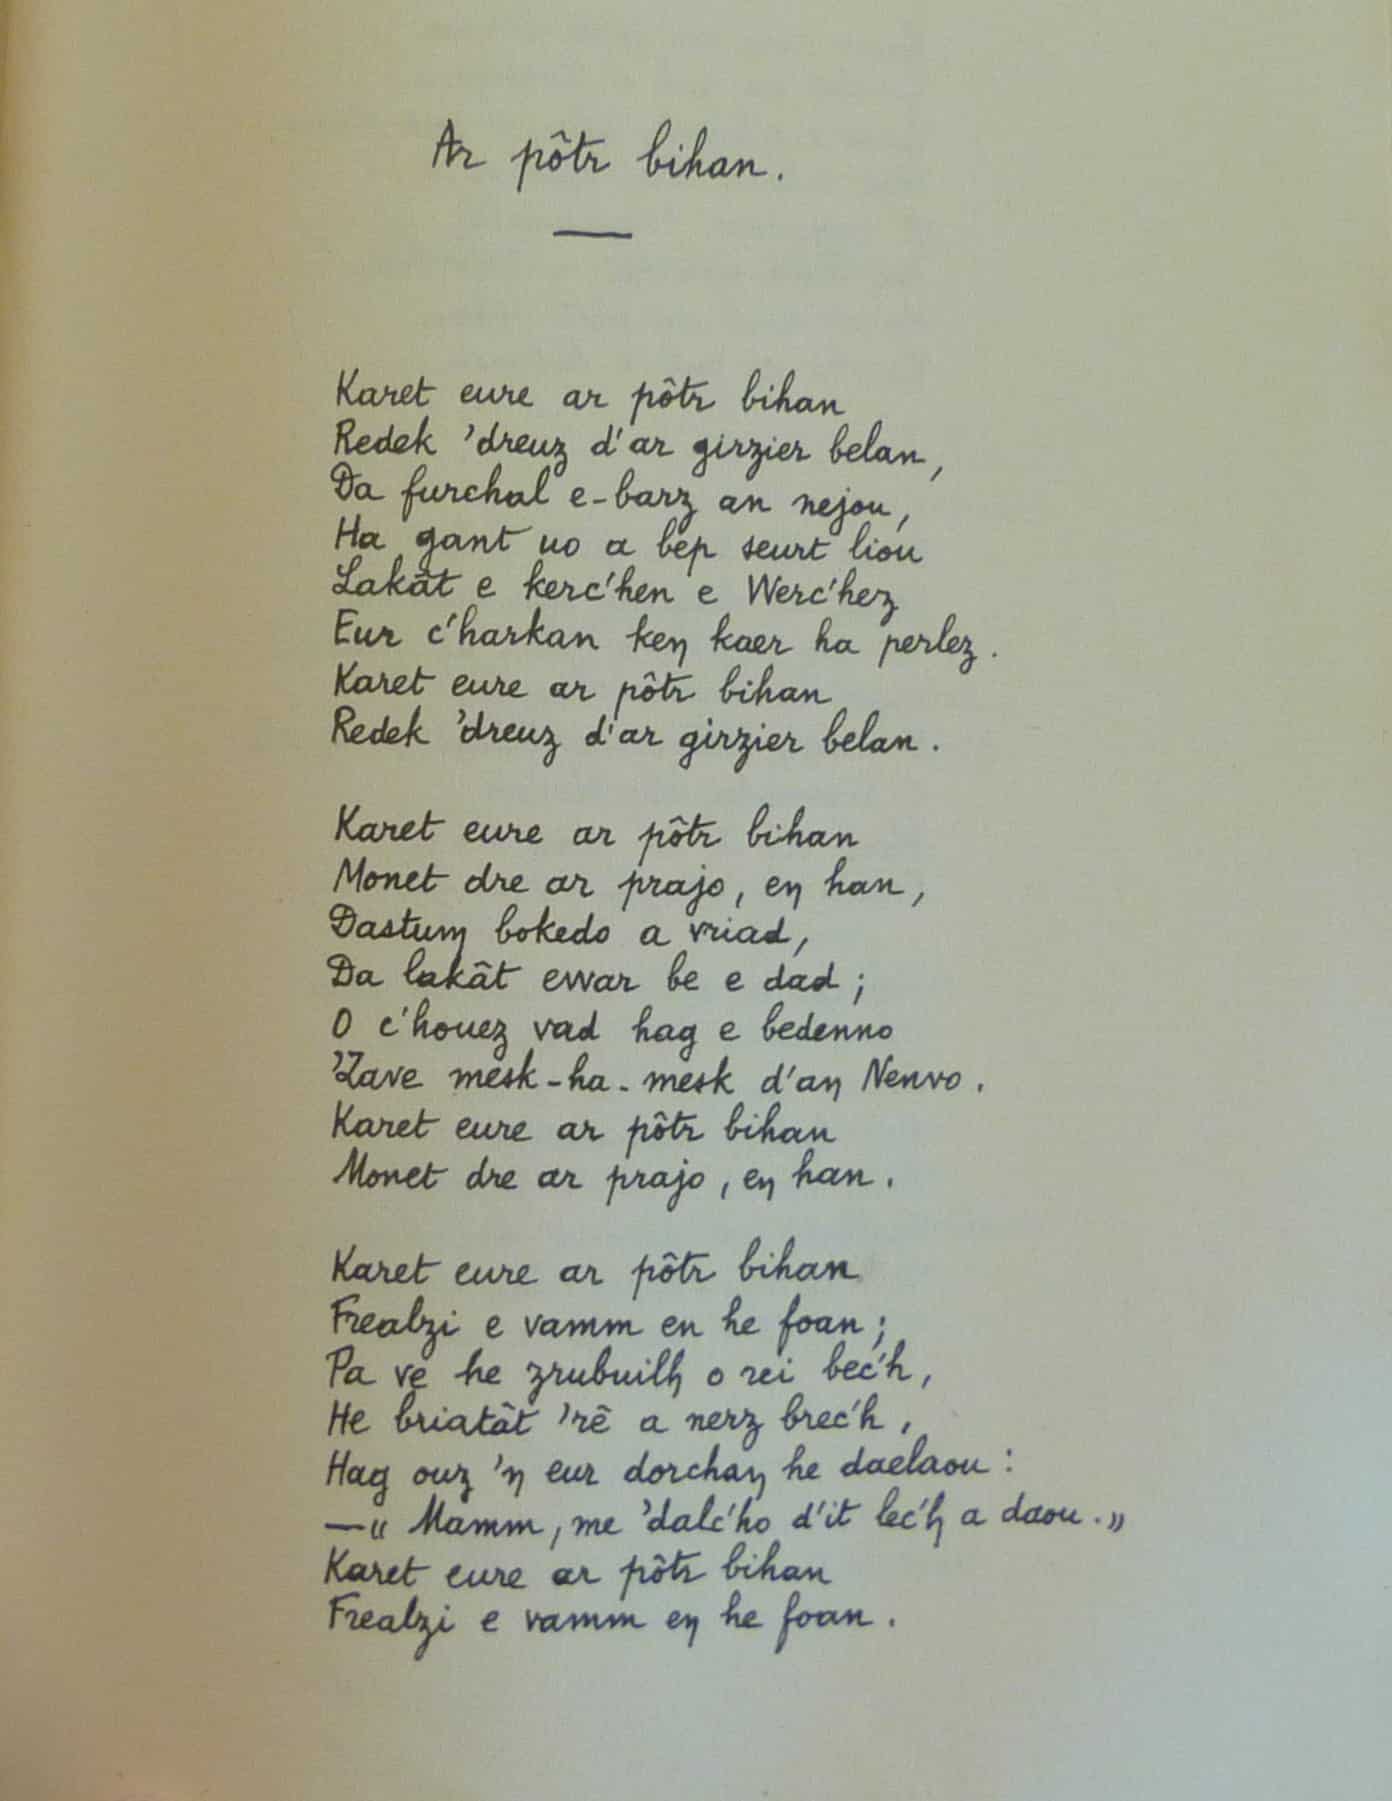 Ar pôtr bihan.
Karet eure ar pôtr bihan
Redek 'dreuz d'ar girzier belan,
Da furchal e-barz an nejou,
Ha gant uo a bep seurt liou
Lakât e kerc'hen e Werc'hez
Eur c'harkan keŋ kaer ha perlez.
Karet eure ar pôtr bihan
Redek 'dreuz d'ar girzier belan.
Karet eure ar pôtr bihan
Monet dre ar prajo, eŋ han,
Dastuɱ bokedo a vriad,
Da lakât ewar be e dad ;
O c'houez vad hag e bedenno
'Zave mesk-ha-mesk d'aŋ Nenvo.
Karet eure ar pôtr bihan
Monet dre ar prajo, eŋ han.
Karet eure ar pôtr bihan
Frealzi e vamm en he foan ;
Pa vê he zrubuilh o rei bec'h,
He briatât 'rê a nerz brec'h,
Hag ouz 'ŋ eur dorchaŋ he daelaou :
—« Mamm, me 'dalc'ho d'it lec'h a daou. »
Karet eure ar pôtr bihan
Frealzi e vamm eŋ he foan.